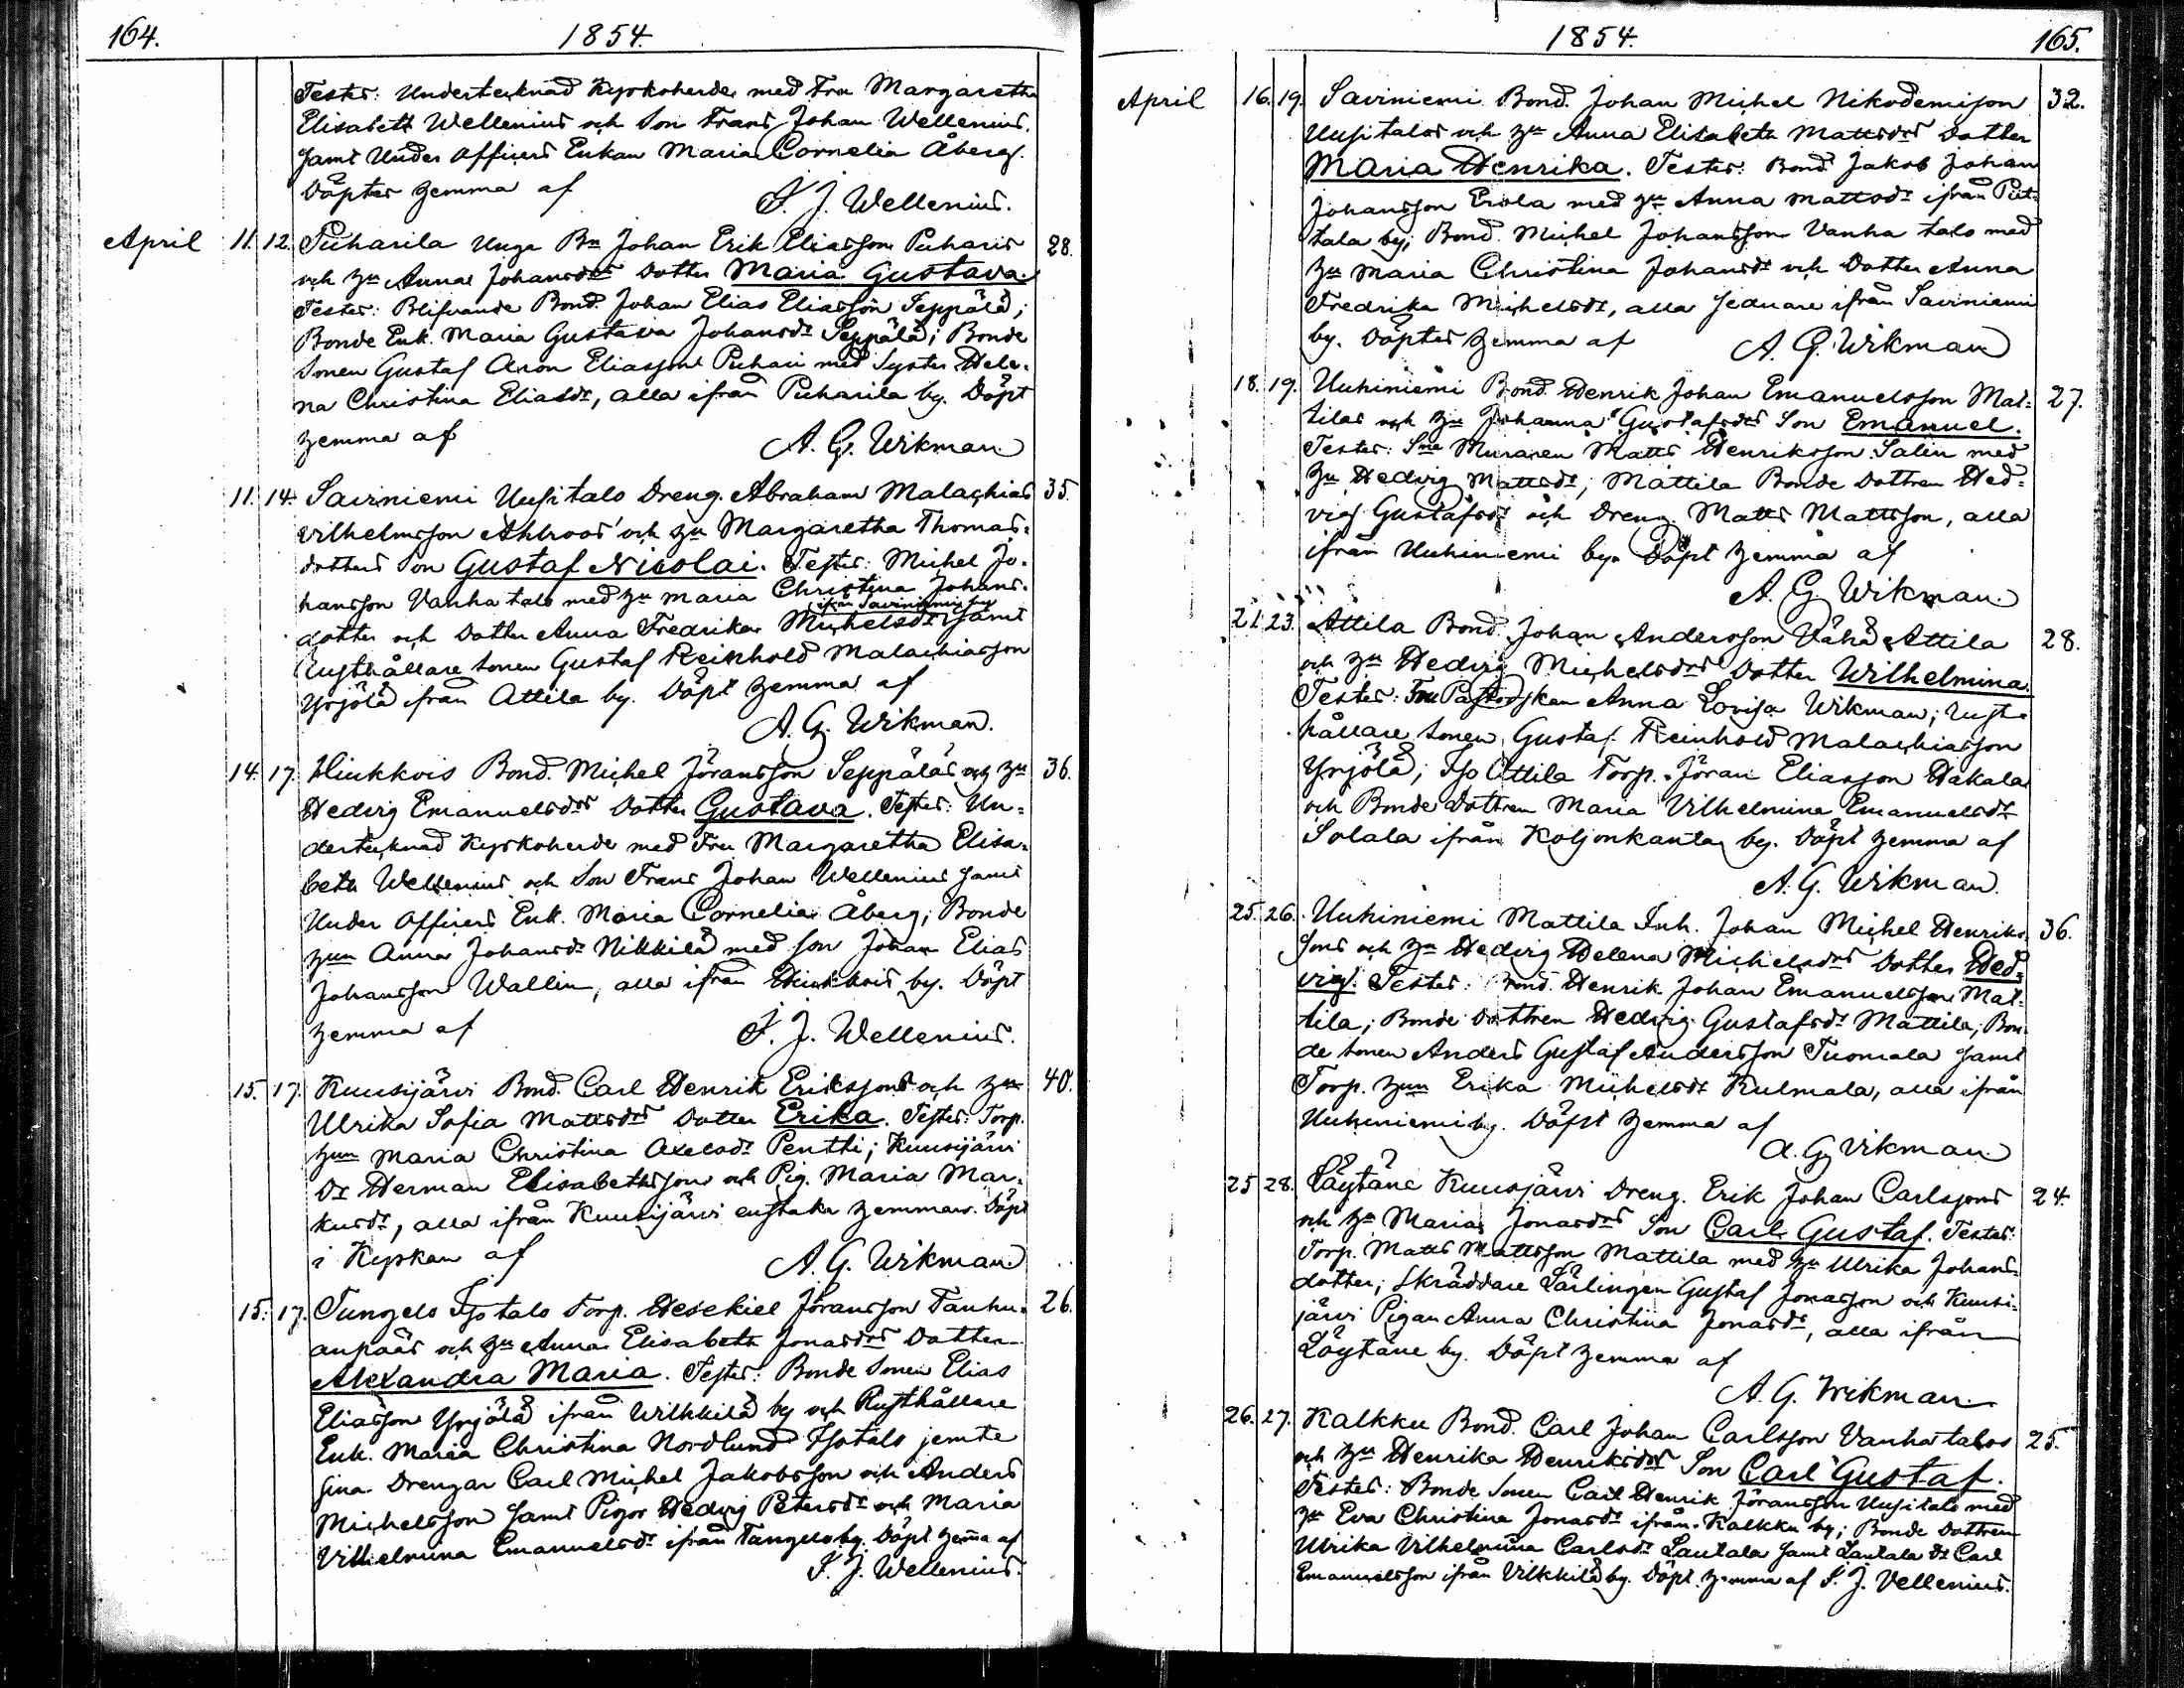 164.
1854.
Testes: Undertecknad Kyrkoherde med Fru Margaretha
Elisabeth Wellenius och Son Frans Johan Wellenius.
samt Under Officers Enkan Maria Cornelia Åberg.
Döptes hemma af
F. J. Wellenius.
April 11. 12. Puharila Unga Bn Johan Erik Eliasson Puharis 28.
och hu Anna Johansdrs Dotter Maria Gustava.
Testes: Blifvande Bond. Johan Elias Eliasson Seppälä;
Bonde Enk. Maria Gustava Johansdr Seppälä; Bonde
Sonen Gustaf Aron Eliasson Puhari med Syster Hele-
na Christina Eliasdr, alla ifrån Puharila by. Döpt
hemma af
A. G. Wikman
11. 14. Saviniemi Uusitalo Dreng. Abraham Malachias 35.
Vilhelmsson Ahlroos' och hu Margaretha Thomas-
dotters Son Gustaf Nicolai. Testes: Michel Jo-
hansson Vanhatalo med hu Maria Christina Johans-
ifrån Saviniemi by
dotter och Dotter Anna Fredrika Michelsdr samt
Rusthållare Sonen Gustaf Reinhold Malachiasson
Yrjölä ifrån Attila by. Döpt hemma af
A. G. Wikman.
14. 17. Hinkkois Bond. Michel Jöransson Seppäläs och hu 36.
Hedvig Emanuelsdrs Dotter Gustava. Testes: Un-
dertecknad Kyrkoherde med Fru Margaretha Elisa-
beth Wellenius och Son Frans Johan Wellenius samt
Under Officers Enk. Maria Cornelia Åberg; Bonde
hun Anna Johansdr Nikkilä med Son Johan Elias
Johansson Wallin, alla ifrån Hinkkois by. Döpt
hemma af
F. J. Wellenius.
15. 17. Kuusijärvi Bond. Carl Henrik Erikssons och hu 40.
Ulrika Sofia Mattsdrs Dotter Erika. Testes: Torp.
hun Maria Christina Axelsdr Pentti; Kuusijärvi
Dr Herman Elisabethsson och Pig. Maria Mar-
kusdr, alla ifrån Kuusijärvi enstaka hemman. Döpt
i Kyrkan af
A. G. Wikman
15. 17. Tungelo Iso talo Torp. Hesekiel Jöransson Tanhu- 26.
anpääs och hu Anna Elisabeth Jonasdrs Dotter
Alexandra Maria. Testes: Bonde Sonen Elias
Eliasson Yrjölä ifrån Wilkkilä by och Rusthållare
Enk. Maria Christina Nordlund Isotalo jemte
sina Drengar Carl Michel Jakobsson och Anders
Michelsson samt Pigor Hedvig Petersdr och Maria
Vilhelmina Emanuelsdr ifrån Tungelo by. Döpt hema af
F. J. Wellenius.
1854.
165.
April 16. 19. Saviniemi Bond. Johan Michel Nikodemisson 32.
Uusitalos och hu Anna Elisabeth Mattsdrs Dotter
Maria Henrika. Testes: Bond. Jakob Johan
Johansson Erola med hu Anna Mattsdr ifrån Put-
tala by; Bond. Michel Johansson Vanha talo med
hu Maria Christina Johansdr och Dotter Anna
Fredrika Michelsdr, alla sednare ifrån Saviniemi
by. Döptes hemma af
A. G. Wikman
18. 19. Uuhiniemi Bond. Henrik Johan Emanuelsson Mat- 27.
tilas och hu Johanna Gustafsdrs Son Emanuel.
Testes: Muraren Matts Henriksson Salin med
hu Hedvig Mattsdr; Mattila Bonde Dottren Hed-
vig Gustafsdr och Dreng Matts Mattsson, alla
ifrån Uuhiniemi by. Döpt hemma af
A. G. Wikman.
21. 23. Attila Bond. Johan Andersson Vähä Attila 28.
och hu Hedvig Michelsdrs Dotter Wilhelmina.
Testes: Fru Pastorskan Anna Lovisa Wikman; Rust-
hållare Sonen Gustaf Reinhold Malachiasson
Yrjölä; Iso Attila Torp. Jöran Eliasson Hakala
och Bonde Dottren Maria Vilhelmina Emanuelsdr
Solala ifrån Koljonkanta by. Döpt hemma af
A. G. Wikman
25. 26. Uuhiniemi Mattila Inh. Johan Michel Henriks- 36.
sons och hu Hedvig Helena Michelsdrs Dotter Hed-
vig. Testes: Bond. Henrik Johan Emanuelsson Mat-
tila; Bonde Dottren Hedvig Gustafsdr Mattila; Bon-
de Sonen Anders Gustaf Andersson Tuomala samt
Torp. hun Erika Michelsdr Kulmala, alla ifrån
Uuhiniemi by. Döpt hemma af
A. G. Vikman
25 28. Löytäne Kuusjärvi Dreng. Erik Johan Carlssons 24.
och hu Maria Jonasdrs Son Carl Gustaf. Testes:
Torp. Matts Mattsson Mattila med hu Ulrika Johans-
dotter; Skräddare Lärlingen Gustaf Jonasson och Kuusi-
järvi Pigan Anna Christina Jonasdr, alla ifrån
Löytäne by. Döpt hemma af
A. G. Wikman.
26. 27. Kalkku Bond. Carl Johan Carlsson Vanhatalos 25.
och hu Henrika Henriksdrs Son Carl Gustaf.
Testes: Bonde Sonen Carl Henrik Jöransson Uusitalo med
hu Eva Christina Jonasdr ifrån Kalkku by; Bonde Dottren
Ulrika Vilhelmina Carlsdr Lautala samt Lautala Dr Carl
Emanuelsson ifrån Vilkkilä by. Döpt hemma af F. J. Vellenius.